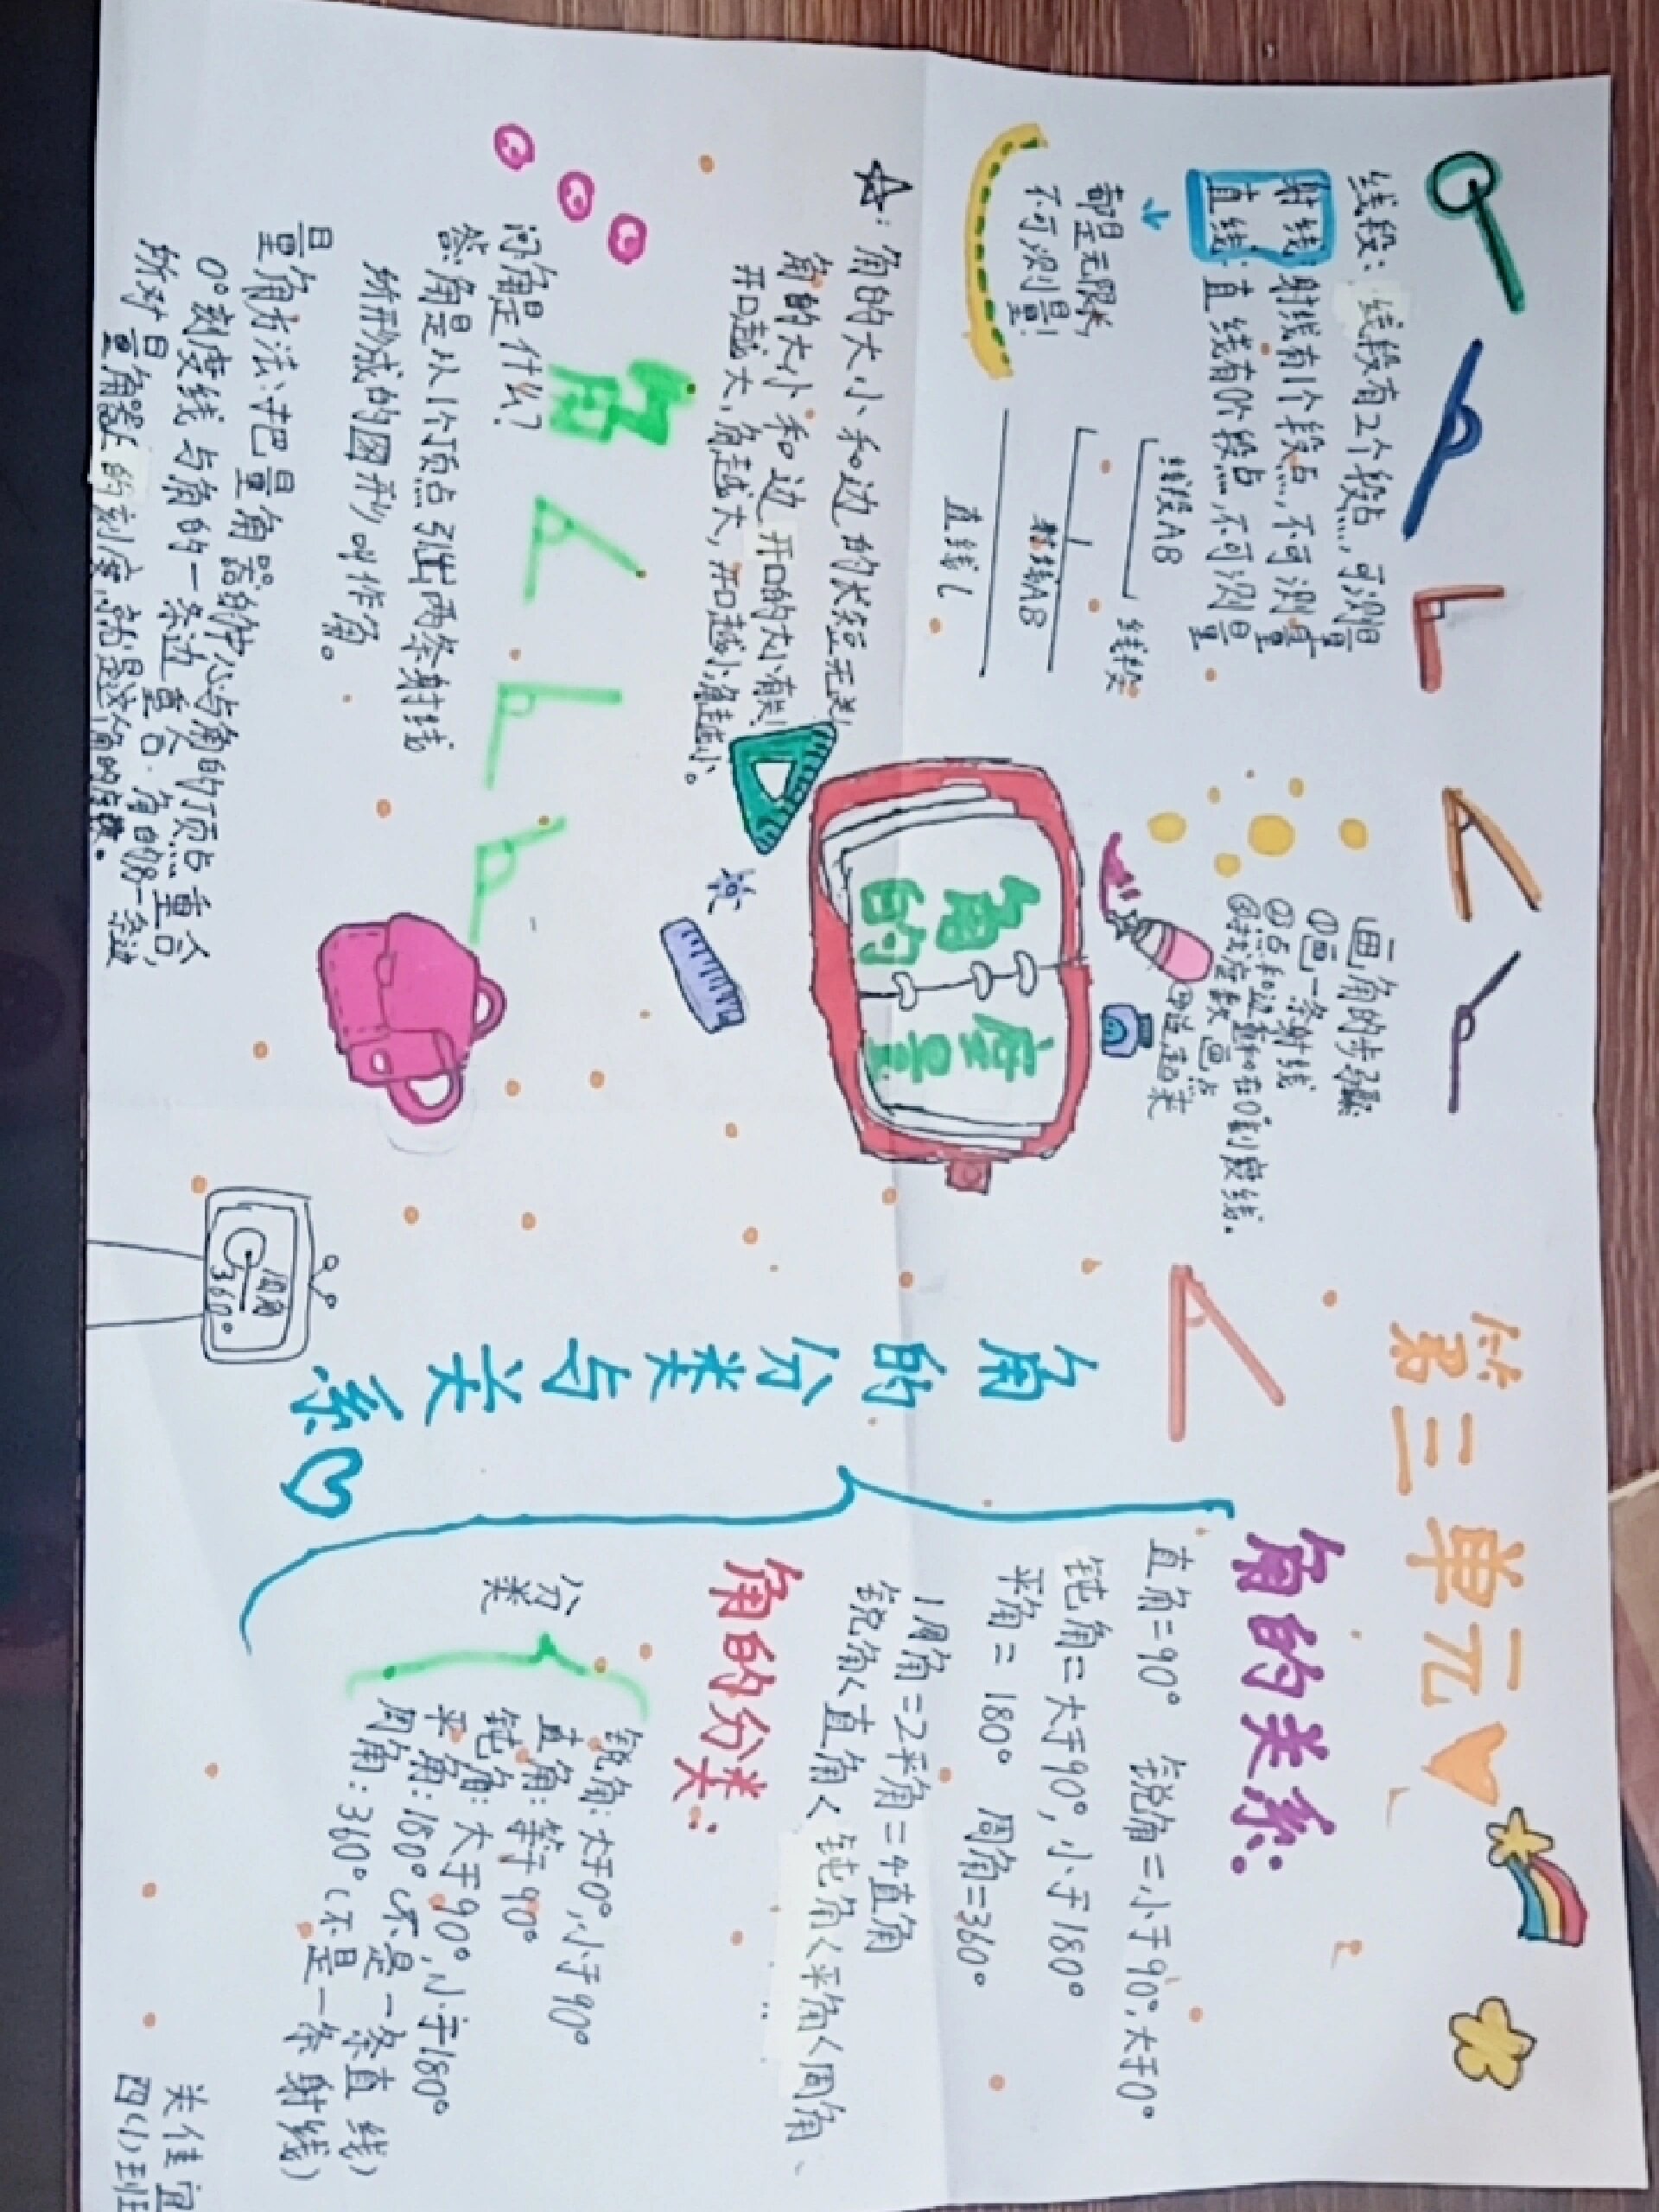 第三单元
线段：线段有2个段点，可测量
射线：射线有1个段点，不可测量
直线：直线有0个段点，不可测量
都是无限长，
不可测量！
线段AB
线段
射线AB
直线l
☆：角的大小和边的长短无关！
角的大小和边开口的大小有关！
开口越大，角越大，开口越小角越小。
角
问：角是什么？
答：角是从1个顶点引出两条射线
所形成的图形叫作角。
量角方法：把量角器的中心与角的顶点重合，
0°刻度线与角的一条边重合，角的另一条边
所对量角器上的刻度，就是这个角的度数。
画角的步骤
①画一条射线
②点和边重和在0°刻度线。
③找度数画点
④连起来
角的
度量
周角
360°
角的分类与关系
角的关系：
直角=90° 锐角=小于90°，大于0°
钝角=大于90°，小于180°
平角=180° 周角=360°
1周角=2平角=4直角
锐角<直角<钝角<平角<周角、
角的分类：
分类
锐角：大于0°，小于90°
直角：等于90°
钝角：大于90°，小于180°
平角：180°（不是一条直线）
周角：360°（不是一条射线）
关佳宜
四(1)班